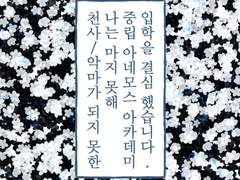 천사/악마가 되지 못한
나는 마지 못해
중립 아네모스 아카데미
입학을 결심 했습니다.